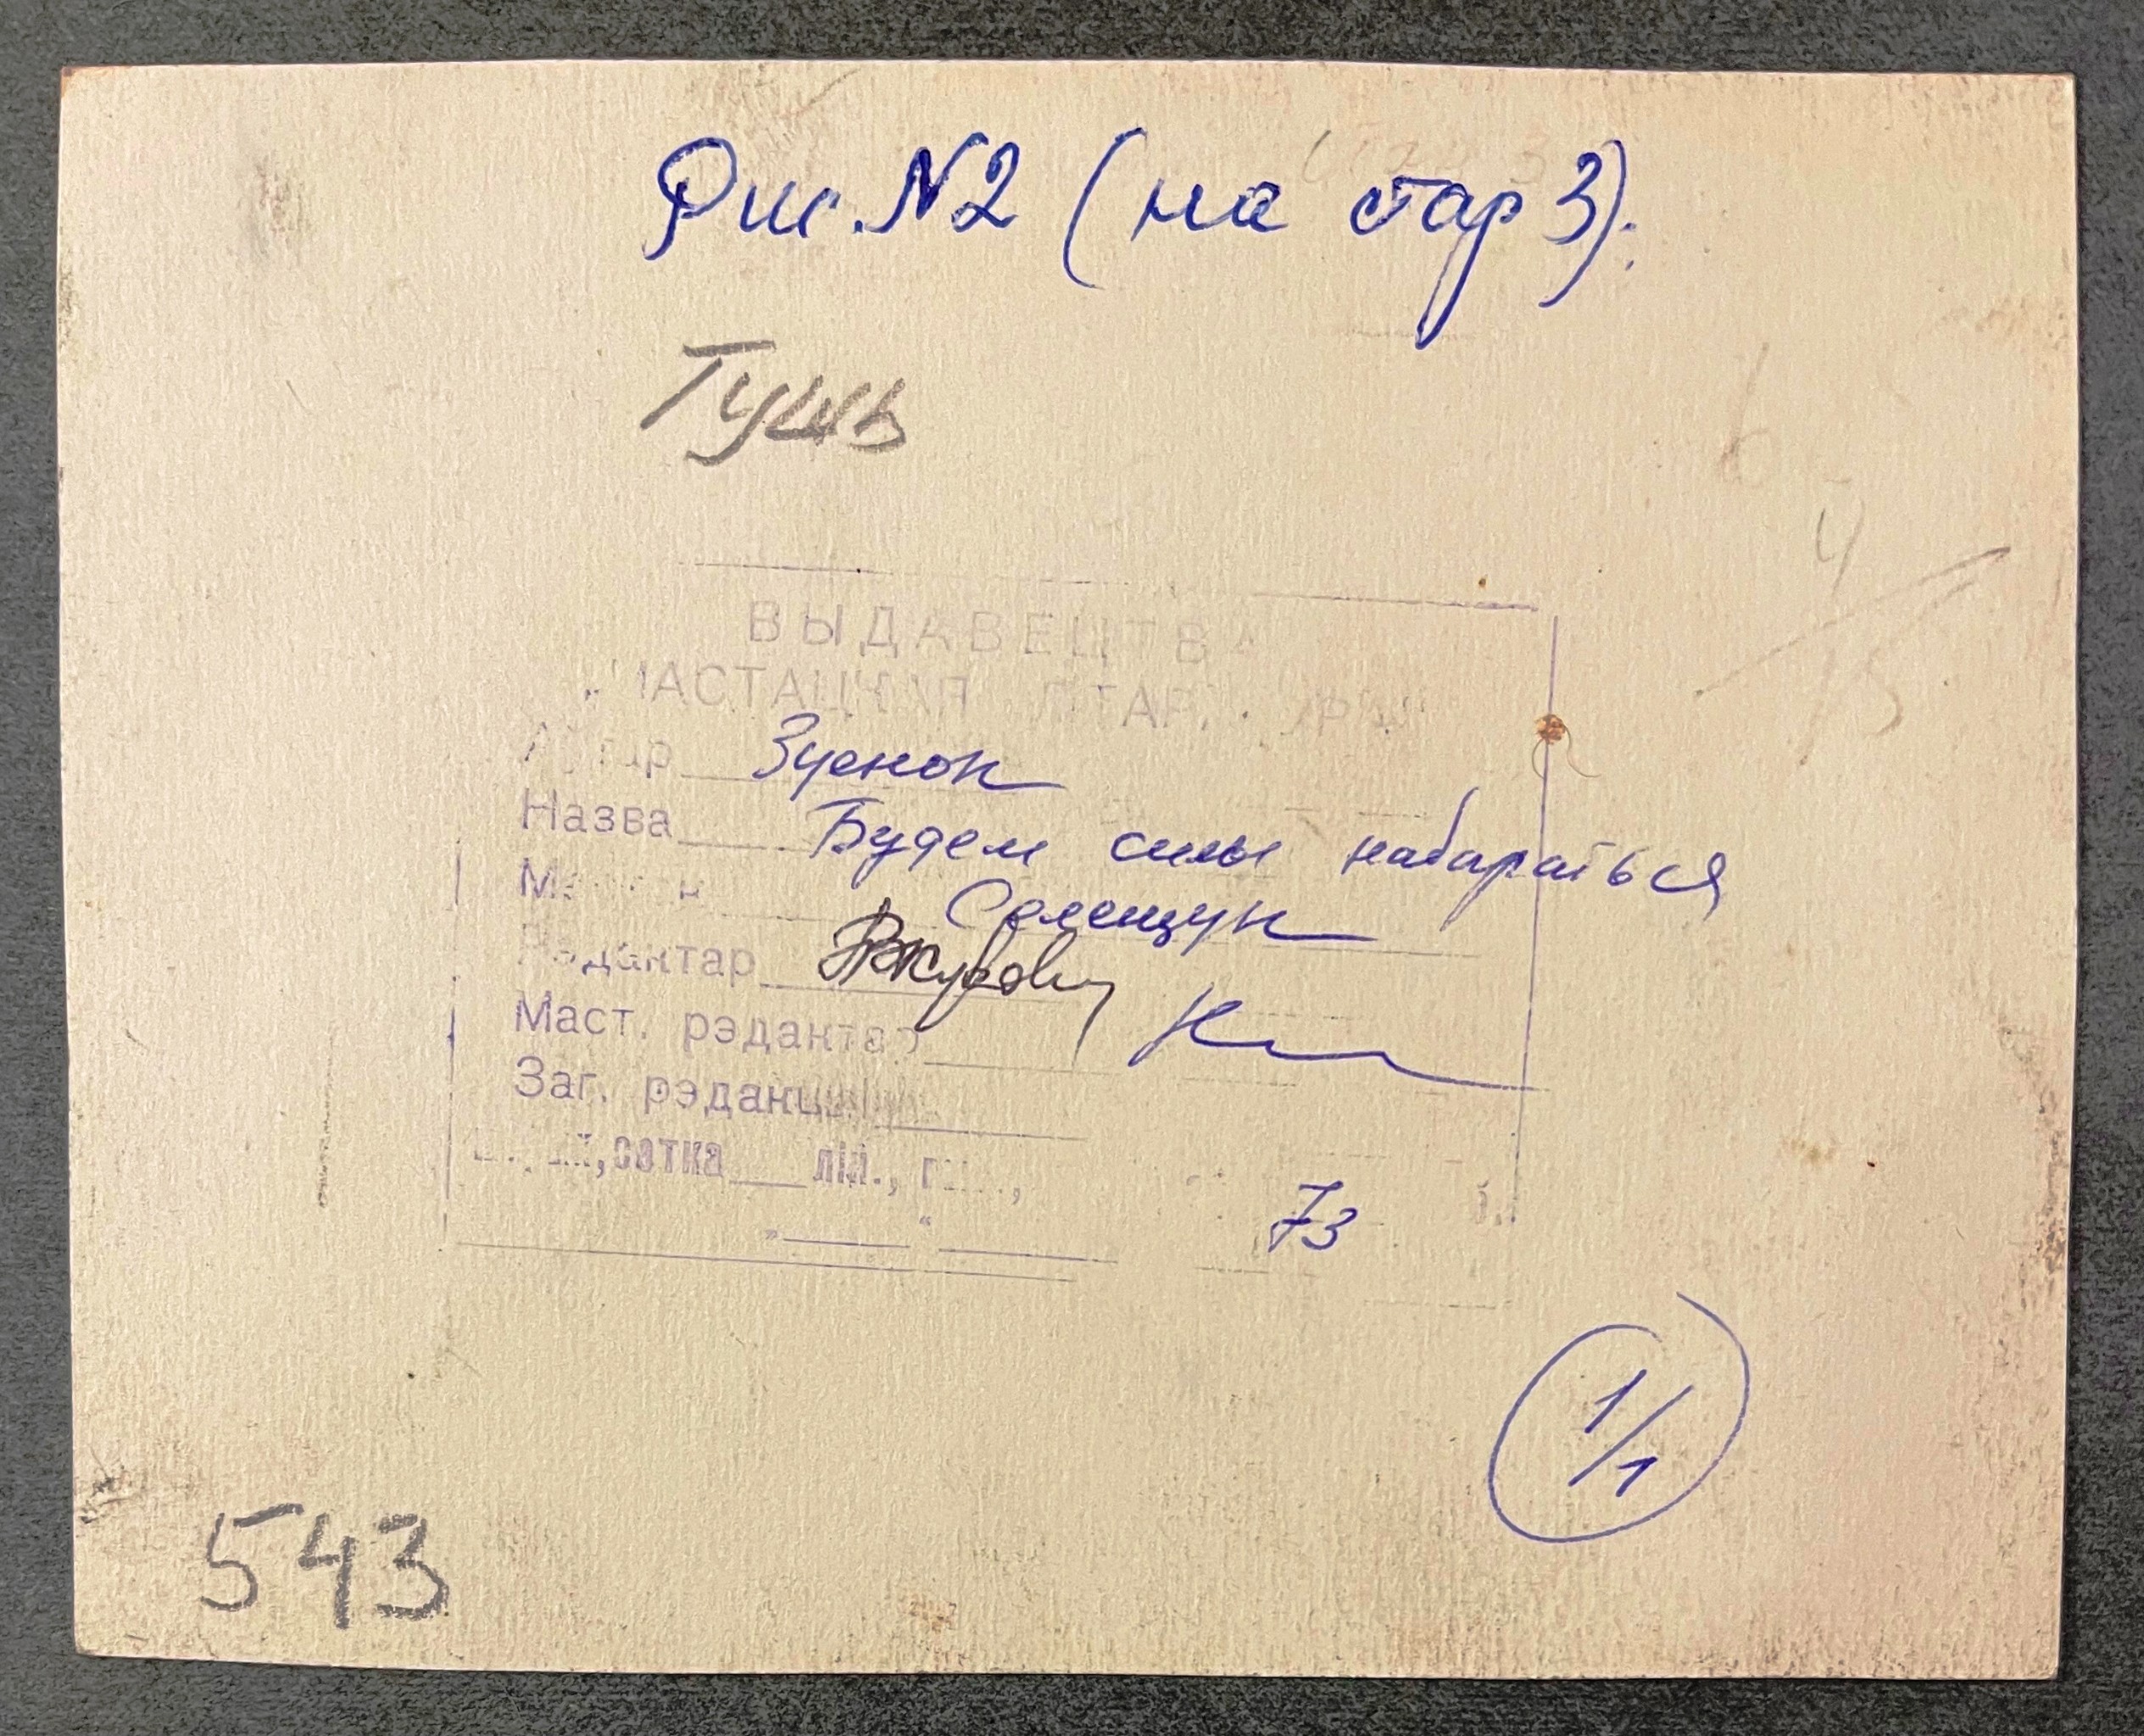 Рис. N2 (на стар 3).
Тушь
ВЫДАВЕЦТВА
„МАСТАЦКАЯ ЛІТАРАТУРА“
Аўтар Зуёнок
Назва Будем силы набараться
Мастак Селещук
Рэдактар
Маст. рэдактар
Заг. рэдакцыі
сетка ліп.,
73
1/1
543